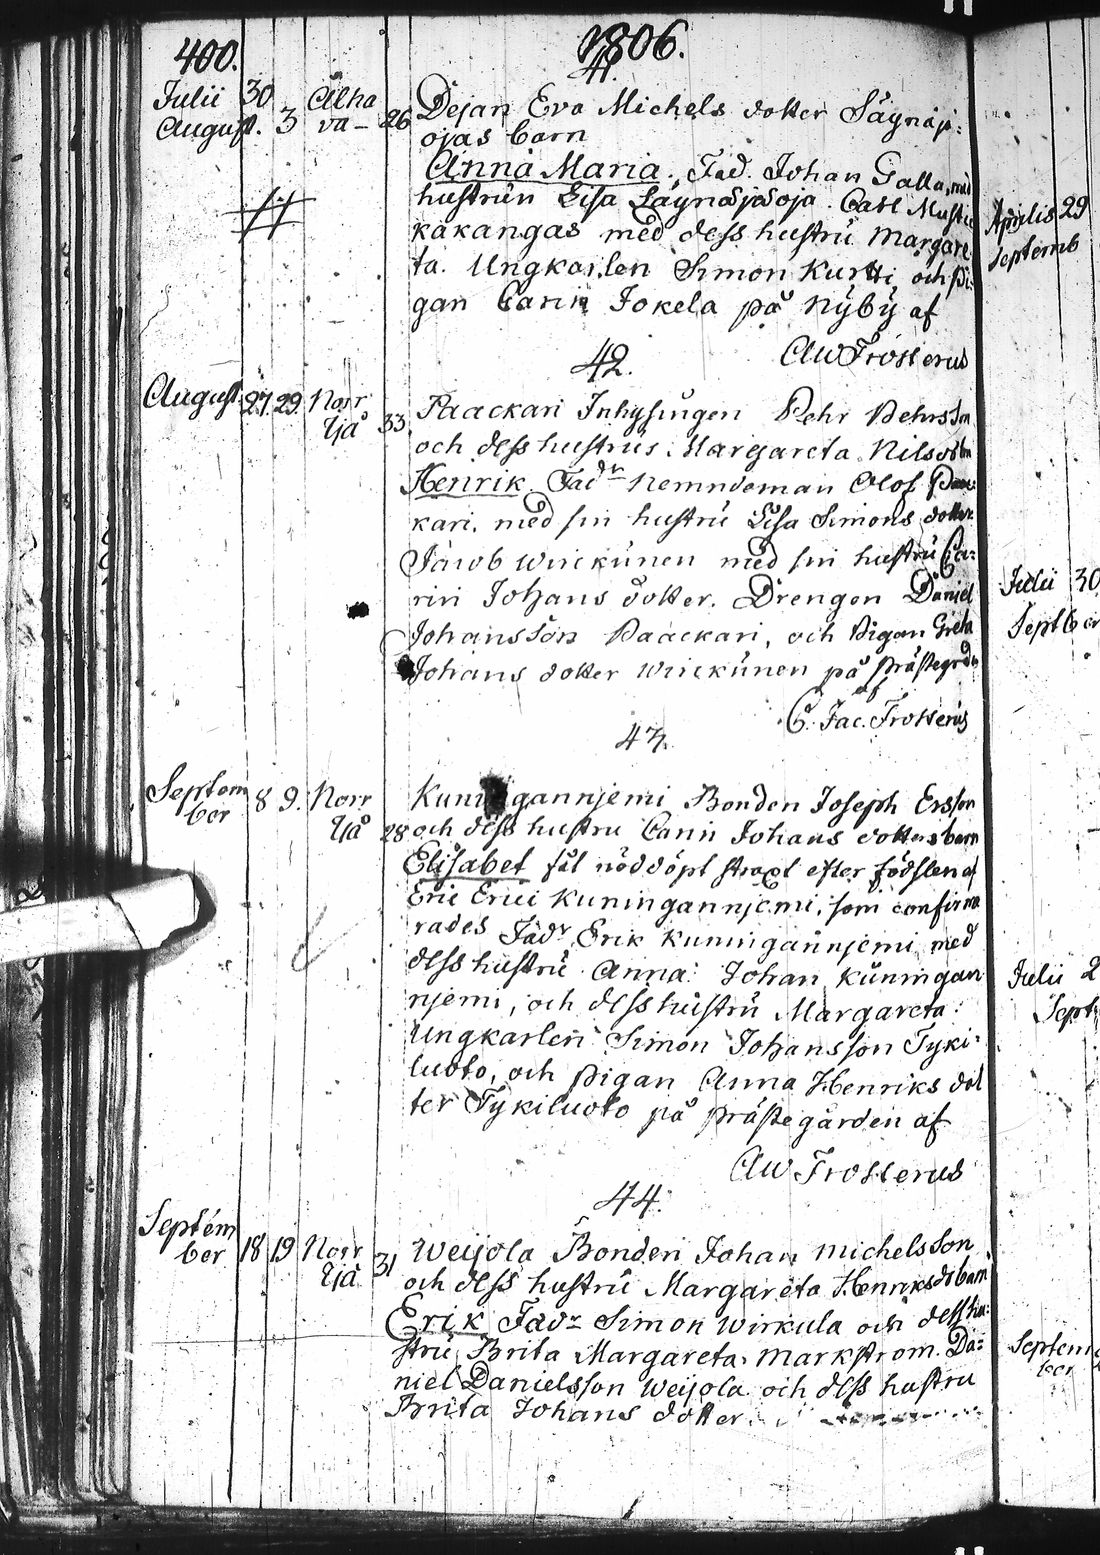 400.
1806.
41.
Julii 30
August. 3
Alha
va - 26
Dejan Eva Michels dotter Säynäj:
ojas barn
Anna Maria. Fad. Johan Galla, med
hustrun Lisa Säynäjäoja. Carl Musta
kakangas med dess hustru Margare
ta. Ungkarlen Simon Kurtti, och pi:
gan Carin Jokela på Nÿbÿ af
AWFrosterus
42.
August. 27. 29. Norr
Ijå 33.
Paackari Inhysingen Pehr Pehrsson
och dess hustrus Margareta Nilsdotter
Henrik. Fadr Nemndeman Olof Paac:
kari, med sin hustru Lisa Simons dotter
Jacob Wirckunen med sin hustru Ca=
rin Johans dotter. Drengen Daniel
Johansson Paackari, och Pigan Greta
Johans dotter Wirckunen på prästegrdn
af
C. Jac. Frosterus
43.
Septem
ber 8 9. Norr
Ijå 28
Kuningannjemi Bonden Joseph Ersson
och dess hustru Carin Johans dotters barn
Elisabet fåt nöddöpt straxt efter födslen af
Eric Erici Kuningannjemi, som confirme
rades Fadr Erik Kuningannjemi med
dess hustru Anna: Johan Kuningan
njemi, och dess hustru Margareta:
Ungkarlen Simon Johansson Tyki=
luoto, och pigan Anna Henriks dot
ter Tykiluoto på prästegården af
AW Frosterus
44.
Septem
ber 18 19 Norr
Ijå 31
Weijola Bonden Johan Michelsson
och dess hustru Margareta Henriksdr barn
Erik Fadr Simon Wirkula och dess hu:
stru Brita Margareta Markstrom. Da=
niel Danielsson Weijola och dess hustru
Brita Johans dotter.
Aprilis 29
Septemb
Julii 30
Septber
Julii 2
Sept
Septem
ber